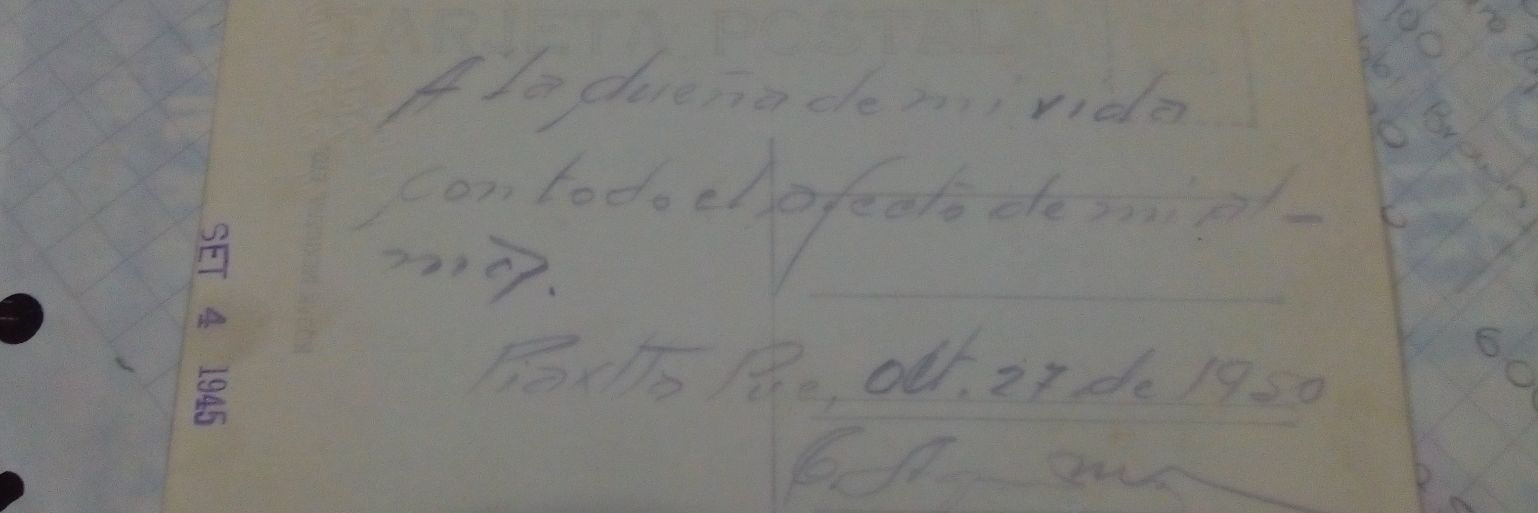 TARJETA POSTAL
A la dueña de mi vida
con todo el afecto de mi al-
ma.
Piaxtla Pue, Oct. 27 de 1950
SET 4 1945